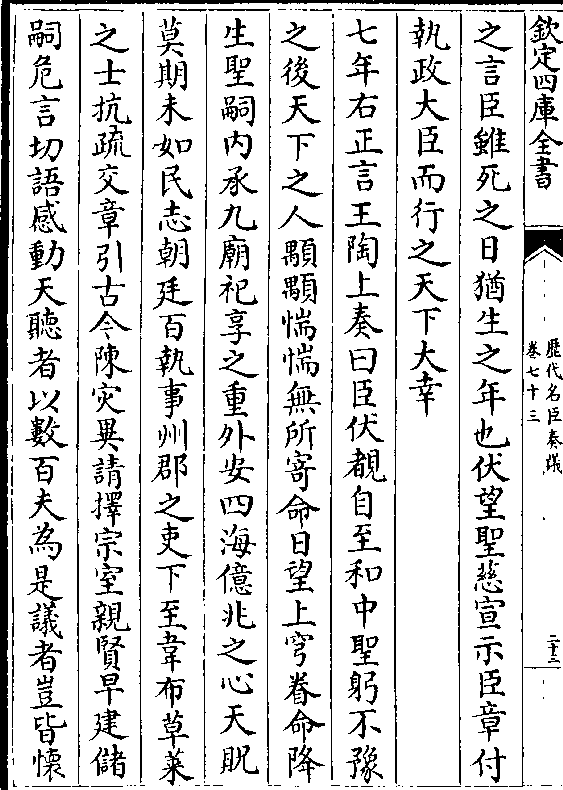 欽定四庫全書
歷代名臣奏議
卷七十三
二十二
之言臣雖死之日猶生之年也伏望聖慈宣示臣章付
執政大臣而行之天下大幸
七年右正言王陶上奏曰臣伏覩自至和中聖躬不豫
之後天下之人顒顒惴惴無所寄命日望上穹眷命降
生聖嗣内承九廟祀享之重外安四海億兆之心天貺
莫期未如民志朝廷百執事州郡之吏下至韋布草萊
之士抗疏交章引古今陳灾異請擇宗室親賢早建儲
嗣危言切語感動天聽者以數百夫為是議者豈皆懐